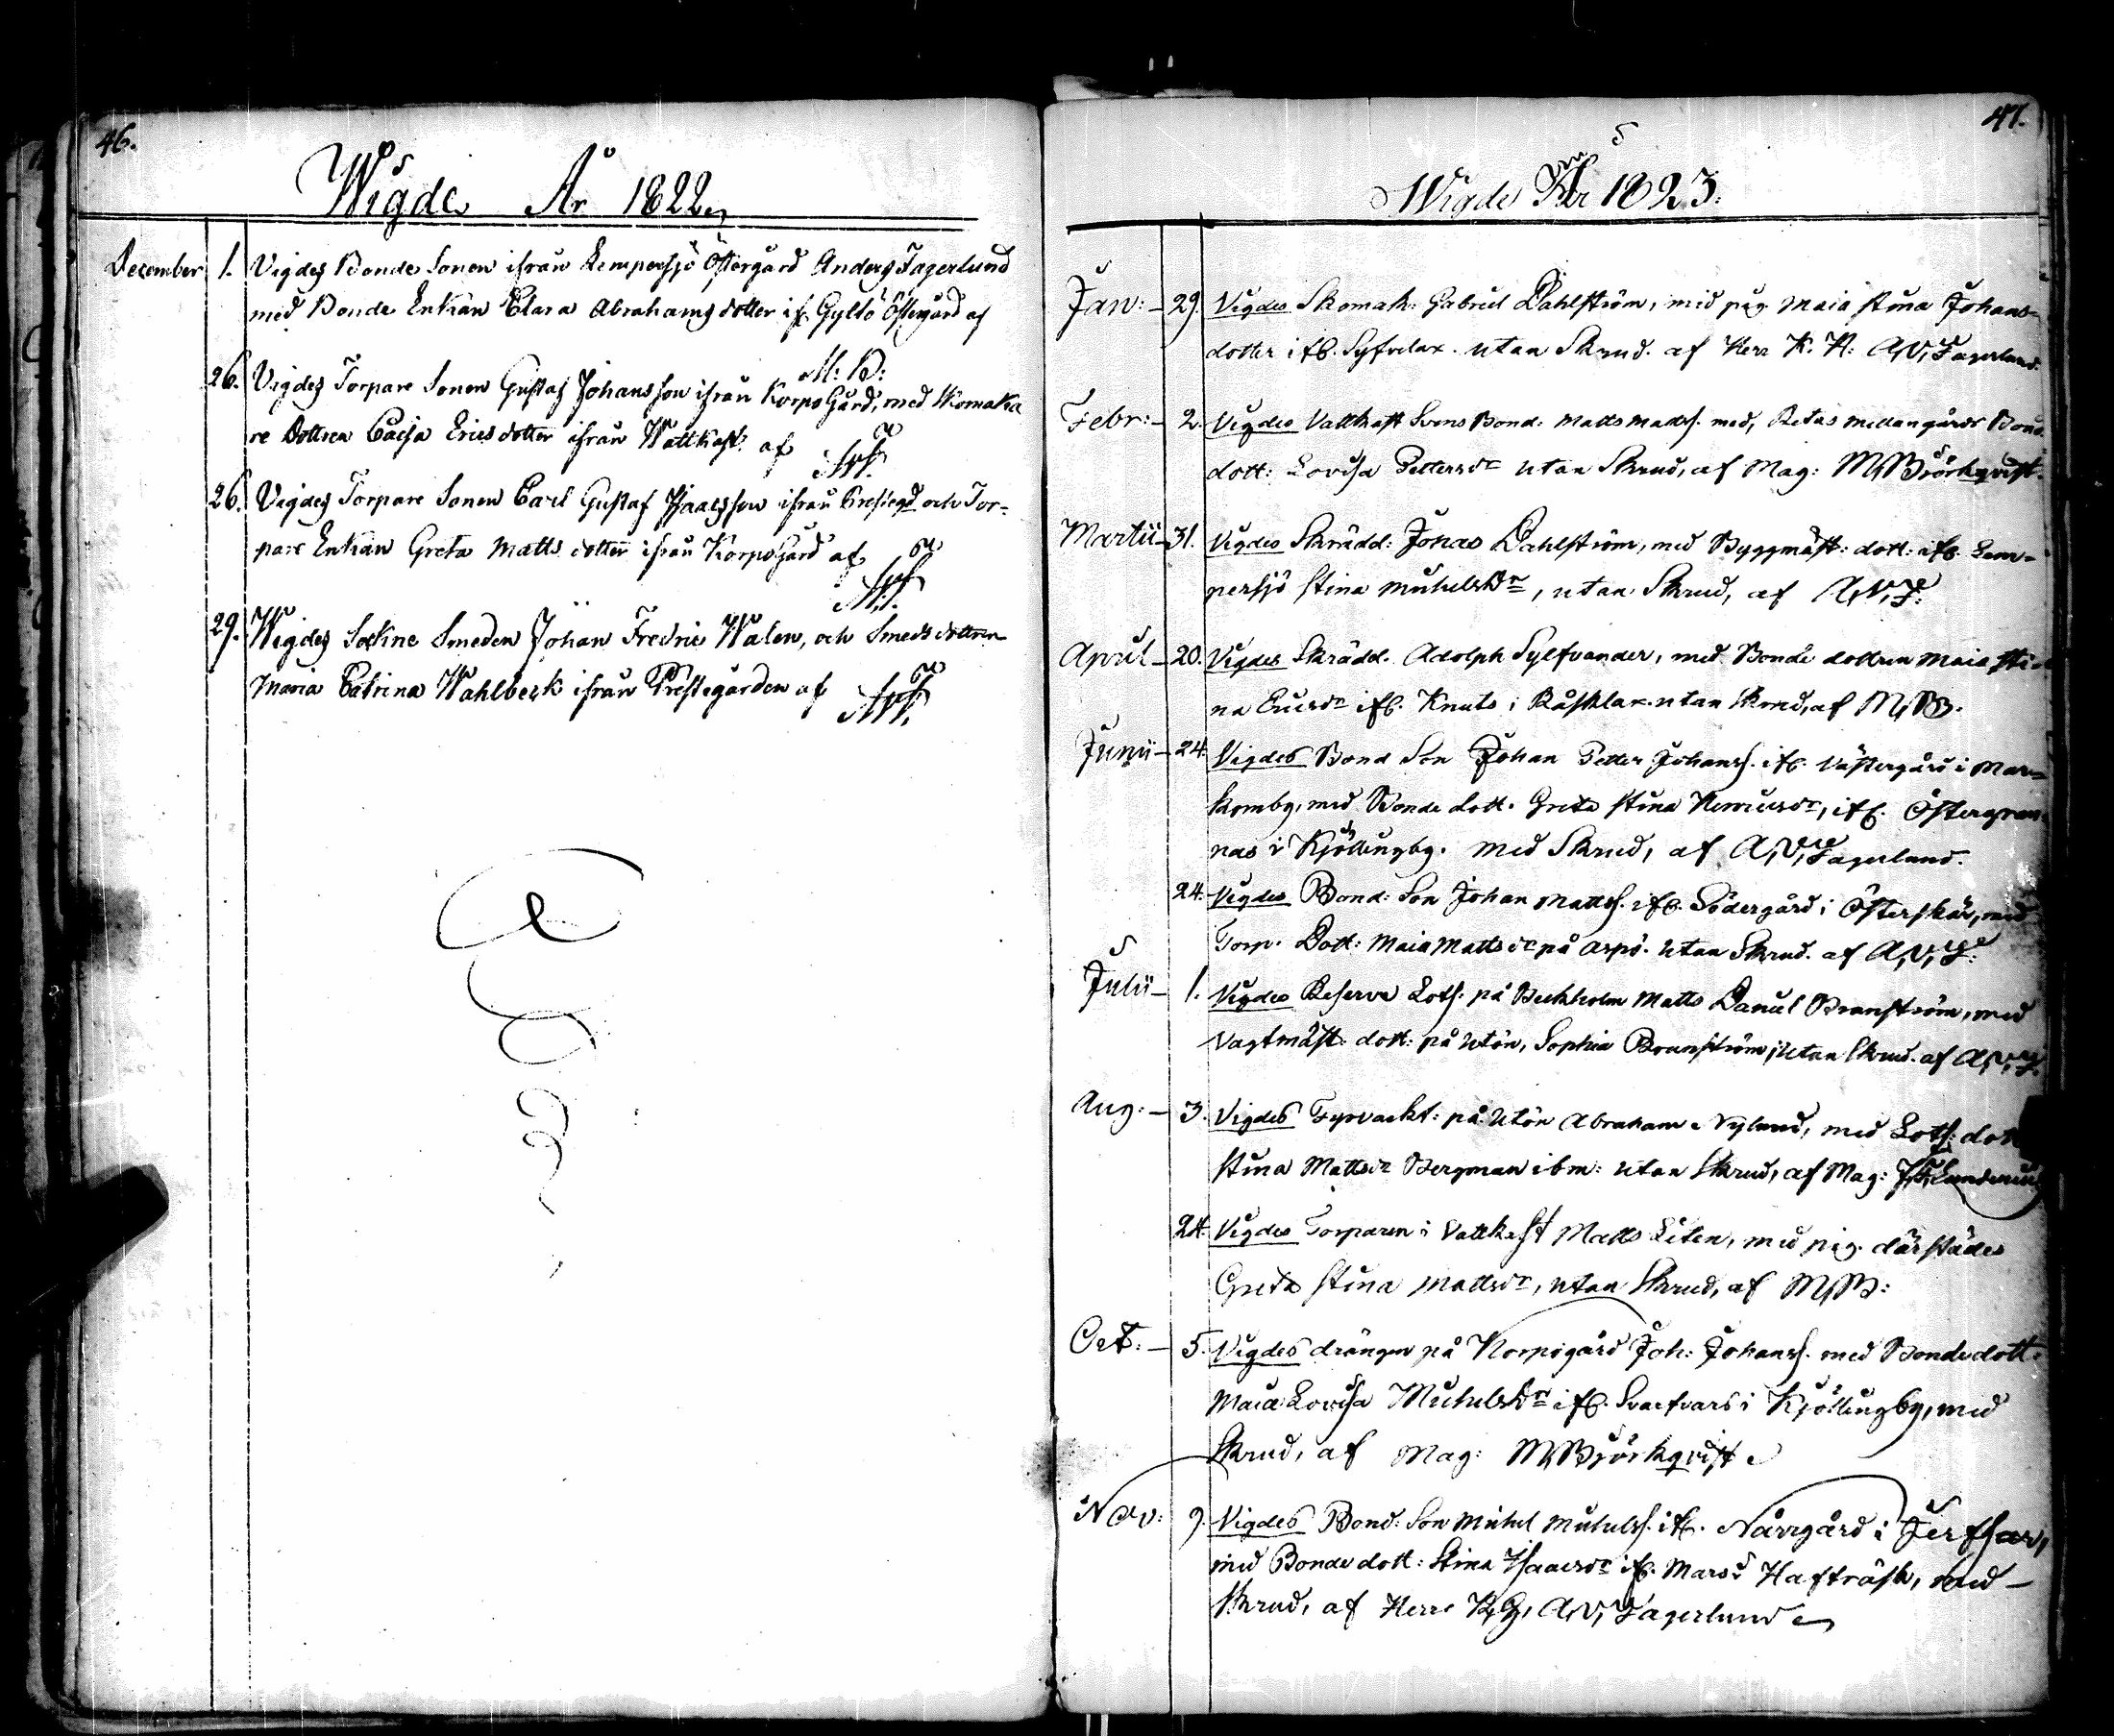 46.
Wigde År 1822.
December 1. Vigdes Bonde Sonen ifrån Lempersjö Östergård Anders Fagerlund
med Bonde Enkan Clara Abrahams dotter if. Gyltö Östergård af
M: B:
26. Vigdes Torpare Sonen Gustaf Johansson ifrån Korpo Gård, med Skomaka
re Dottren Caisa Erics dotter ifrån Wattkast. af
26. Vigdes Torpare Sonen Carl Gustaf Isaacsson ifrån Prestegd och Tor-
pare Enkan Greta Matts dotter ifrån Korpo Gård af
29. Wigdes Sockne Smeden Johan Fredric Walen, och Smeds dottren
Maria Catrina Wahlberk ifrån Prestegården af
47.
Wigde År 1823.
Jan: - 29. Vigdes Skomak: Gabriel Dahlström, med pig. Maia Stina Johans-
dotter ifr. Syfvelax. utan Skrud. af Herr K. H: A,V, Fagerlund.
Febr: - 2. Vigdes Vattkast Svens Bond: Matts Matts. med, Retas mellangårds Bond.
dott: Lovisa Pettersdr utan Skrud, af Mag: M, Björkqvist.
Martii - 31. Vigdes Skrädd: Jonas Dahlström, med Byggmäst: dott: ifr. Lem-
persjö Stina Michelsdr, utan Skrud, af A,V,F.
April - 20. Vigdes Skrädd. Adolph Sylfvander, med Bonde dottren Maia Sti-
na Ericsdr ifr. Knuts i Råsklax utan Skrud, af M, B.
Junii - 24. Vigdes Bond Son Johan Petter Johanss. ifr. Västergård i Mar-
skomby, med Bonde dott. Greta Stina Henricsdr, ifr. Östergran
nas i Kjöllingby. med Skrud, af A,V, Fagerlund.
24. Vigdes Bond: Son Johan Matts. ifr. Södergård i Österskär, med
Torp. Dott: Maia Mattsdr på Aspö. utan Skrud. af A,V,F.
Julii - 1. Vigdes Reserve Lots. på Berkholm Matts Daniel Brunström, med
Vagtmäst. dott: på Utön, Sophia Brunström, utan Skrud. af A,V,F.
Aug: - 3. Vigdes Fyrvackt: på Utön Abraham Nylund, med Lots: dott
Stina Mattsdr Bergman ibm: utan Skrud, af Mag:
24. Vigdes Torparen i Vattkast Matts Liten, med pig. därstädes
Greta Stina Mattsdr, utan Skrud, af M, B:
Oct: - 5. Vigdes drängen på Korpogård Joh: Johanss. med Bondedott.
Maia Lovisa Michelsdr ifr. Svarfvars i Kjöllingby, med
Skrud, af Mag: M, Björkqvist
Nov: 9. Vigdes Bond: Son Michel Michels. ifr. Norrgård i Jerfsar,
med Bonde dott: Stina Isacsdr ifr. Mars i Hafträsk, med
Skrud, af Herr K, H, A,V, Fagerlund